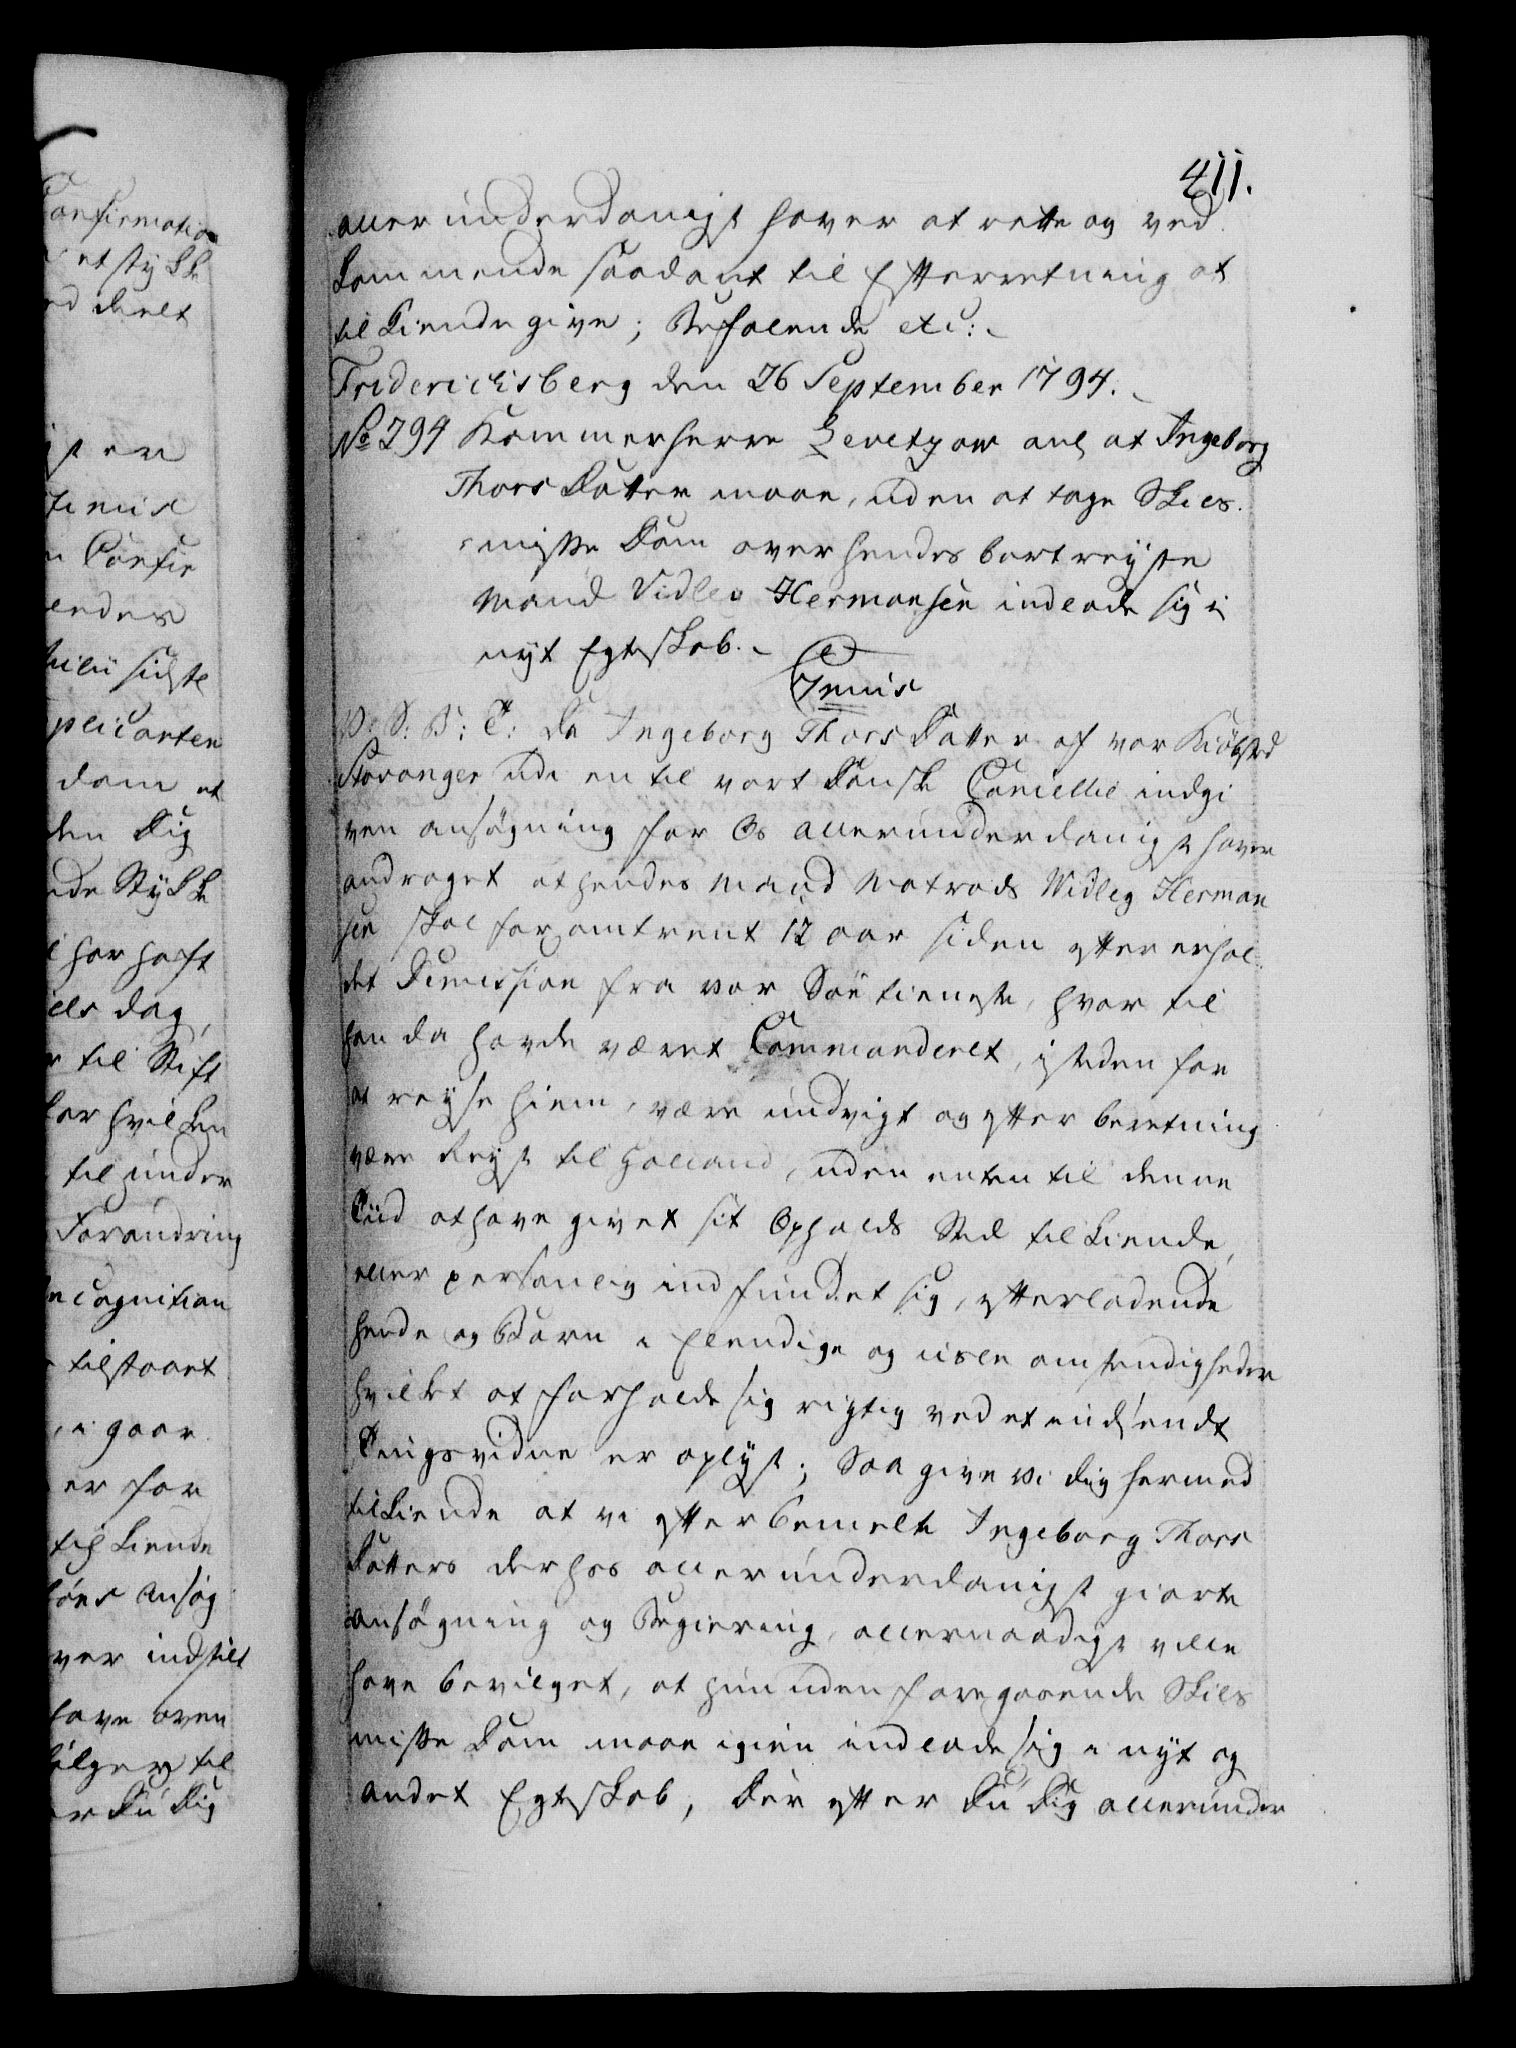 Confirmatio
et stykke
411.
allerunderdanigst haver at rette og ved
kommende saadant til Efterretning at
tilkiendegive; Befalende etc:
Friderichsberg den 26 September 1794.
No 294 Kammerherre Levetzow anl at Ingeborg
Thors Datter maae, uden at tage Skils
misse Dom over hendes bortreyste
Mand Vidlev Hermansen indlade sig i
nyt Egteskab.
Gratis
V: S: B: T: Da Ingeborg Thors Datter af vor Kiøbsted
Stavanger udi en til vort Danske Cancellie indgi
ven ansøgning for Os allerunderdanigst haver
andraget at hendes Mand Matros Widleg Herman
sen skal for omtrent 12 aar siden efter erhol-
det Dimission fra vor Søe tieneste, hvor til
han da havde været Commanderet, isteden for
at reyse hiem, være undvigt og efter beretning
være Reyst til Holland, uden enten til denne
Tiid at have givet sit Opholds Sted tilkiende,
eller personlig indfundet sig, efterladende
hende og Børn i Elendige og usle omstendigheder
hvilket at forholde sig rigtig ved et indsendt
Tingsvidne er oplyst; Saa give vi dig hermed
tilkiende at vi efter bemelte Ingeborg Thors
Datters derhos allerunderdanigst giorte
ansøgning og Begiering, allernaadigst ville
have bevilget, at hun uden foregaaende Skils
misse Dom maae igien indlade sig i nyt og
andet Egteskab, Der efter Du Dig allerunder